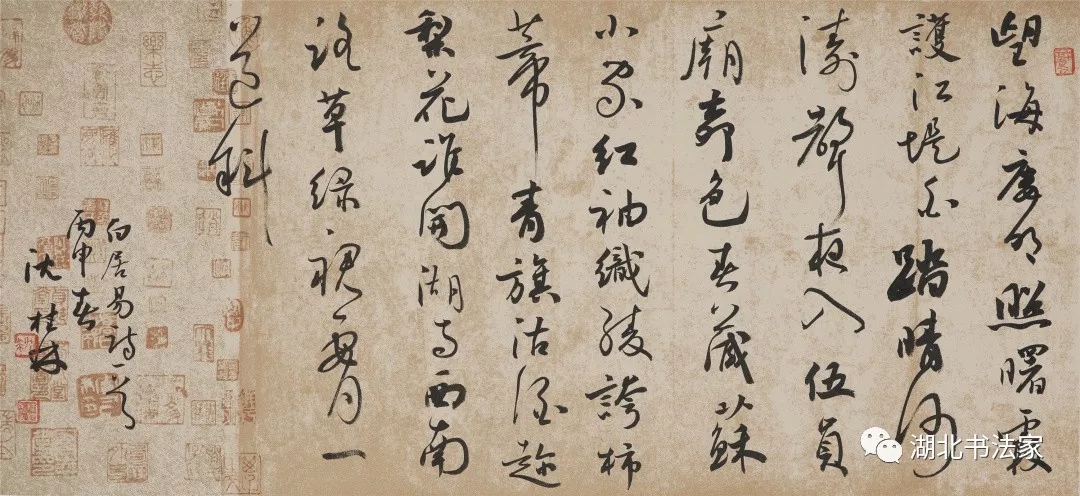 望海樓明照曙霞
護江堤白踏晴沙
濤聲夜入伍員
廟柳色春藏蘇
小家紅袖織綾誇柿
蒂青旗沽酒趁
梨花誰開湖寺西南
路草綠裙腰一
道斜
白居易詩一首
丙申春
沈桂
湖北书法家